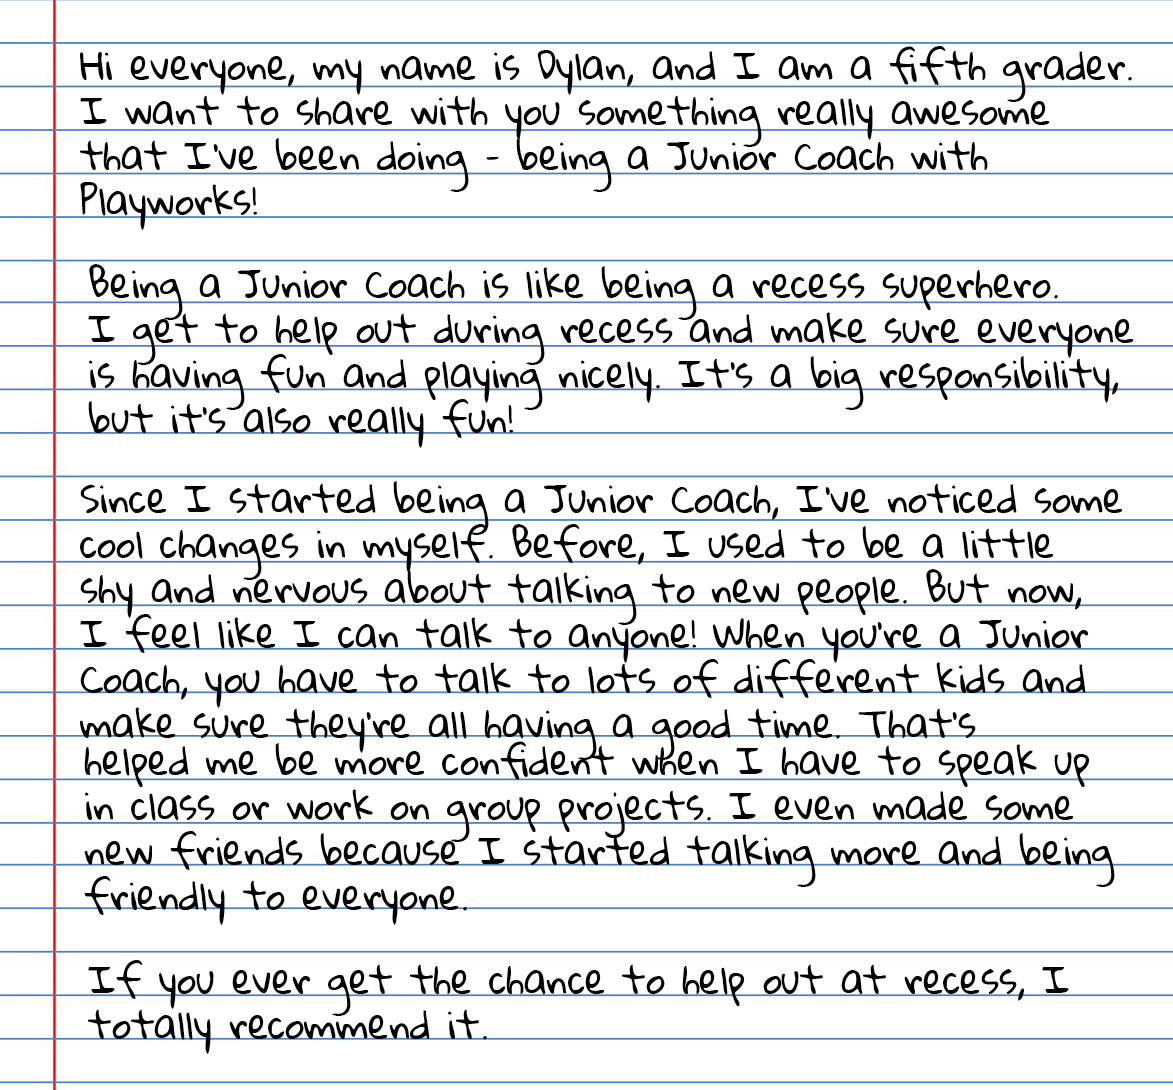 Hi everyone, my name is Dylan, and I am a fifth grader.
I want to share with you something really awesome
that I've been doing - being a Junior Coach with
Playworks!
Being a Junior Coach is like being a recess superhero.
I get to help out during recess and make sure everyone
is having fun and playing nicely. It's a big responsibility,
but it's also really fun!
Since I started being a Junior Coach, I've noticed some
cool changes in myself. Before, I used to be a little
shy and nervous about talking to new people. But now,
I feel like I can talk to anyone! When you're a Junior
Coach, you have to talk to lots of different kids and
make sure they're all having a good time. That's
helped me be more confident when I have to speak up
in class or work on group projects. I even made some
new friends because I started talking more and being
friendly to everyone.
If you ever get the chance to help out at recess, I
totally recommend it.